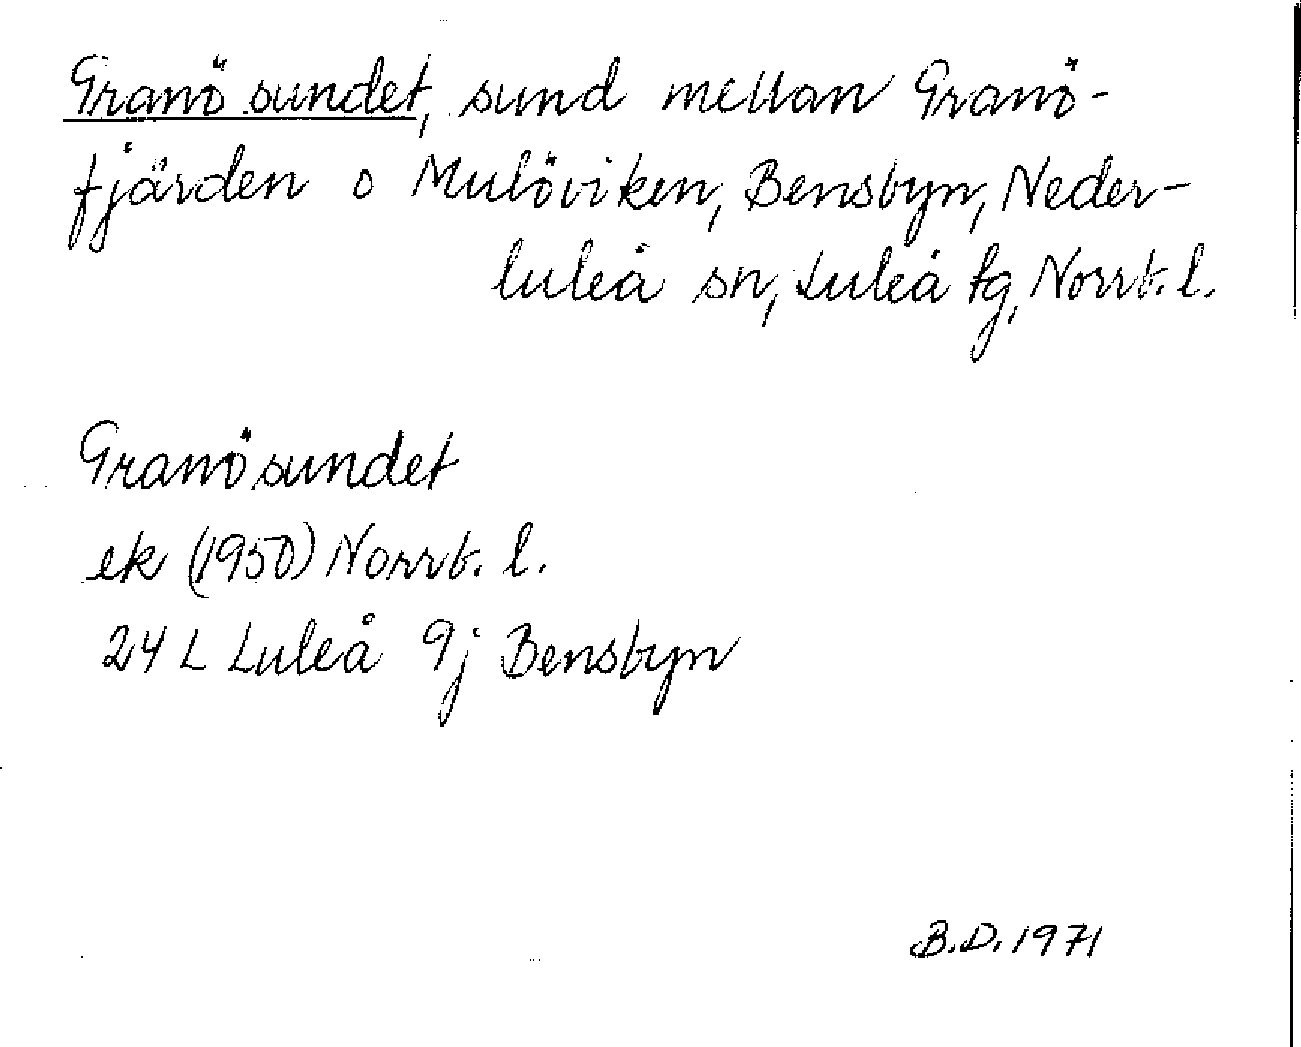 Granösundet, sund mellan Granö-
fjärden o Mulöviken, Bensbyn, Neder-
luleå sn, Luleå tg, Norrb. l.
Granösundet
ek (1950) Norrb. l.
24 L Luleå 9j Bensbyn
B.D. 1971